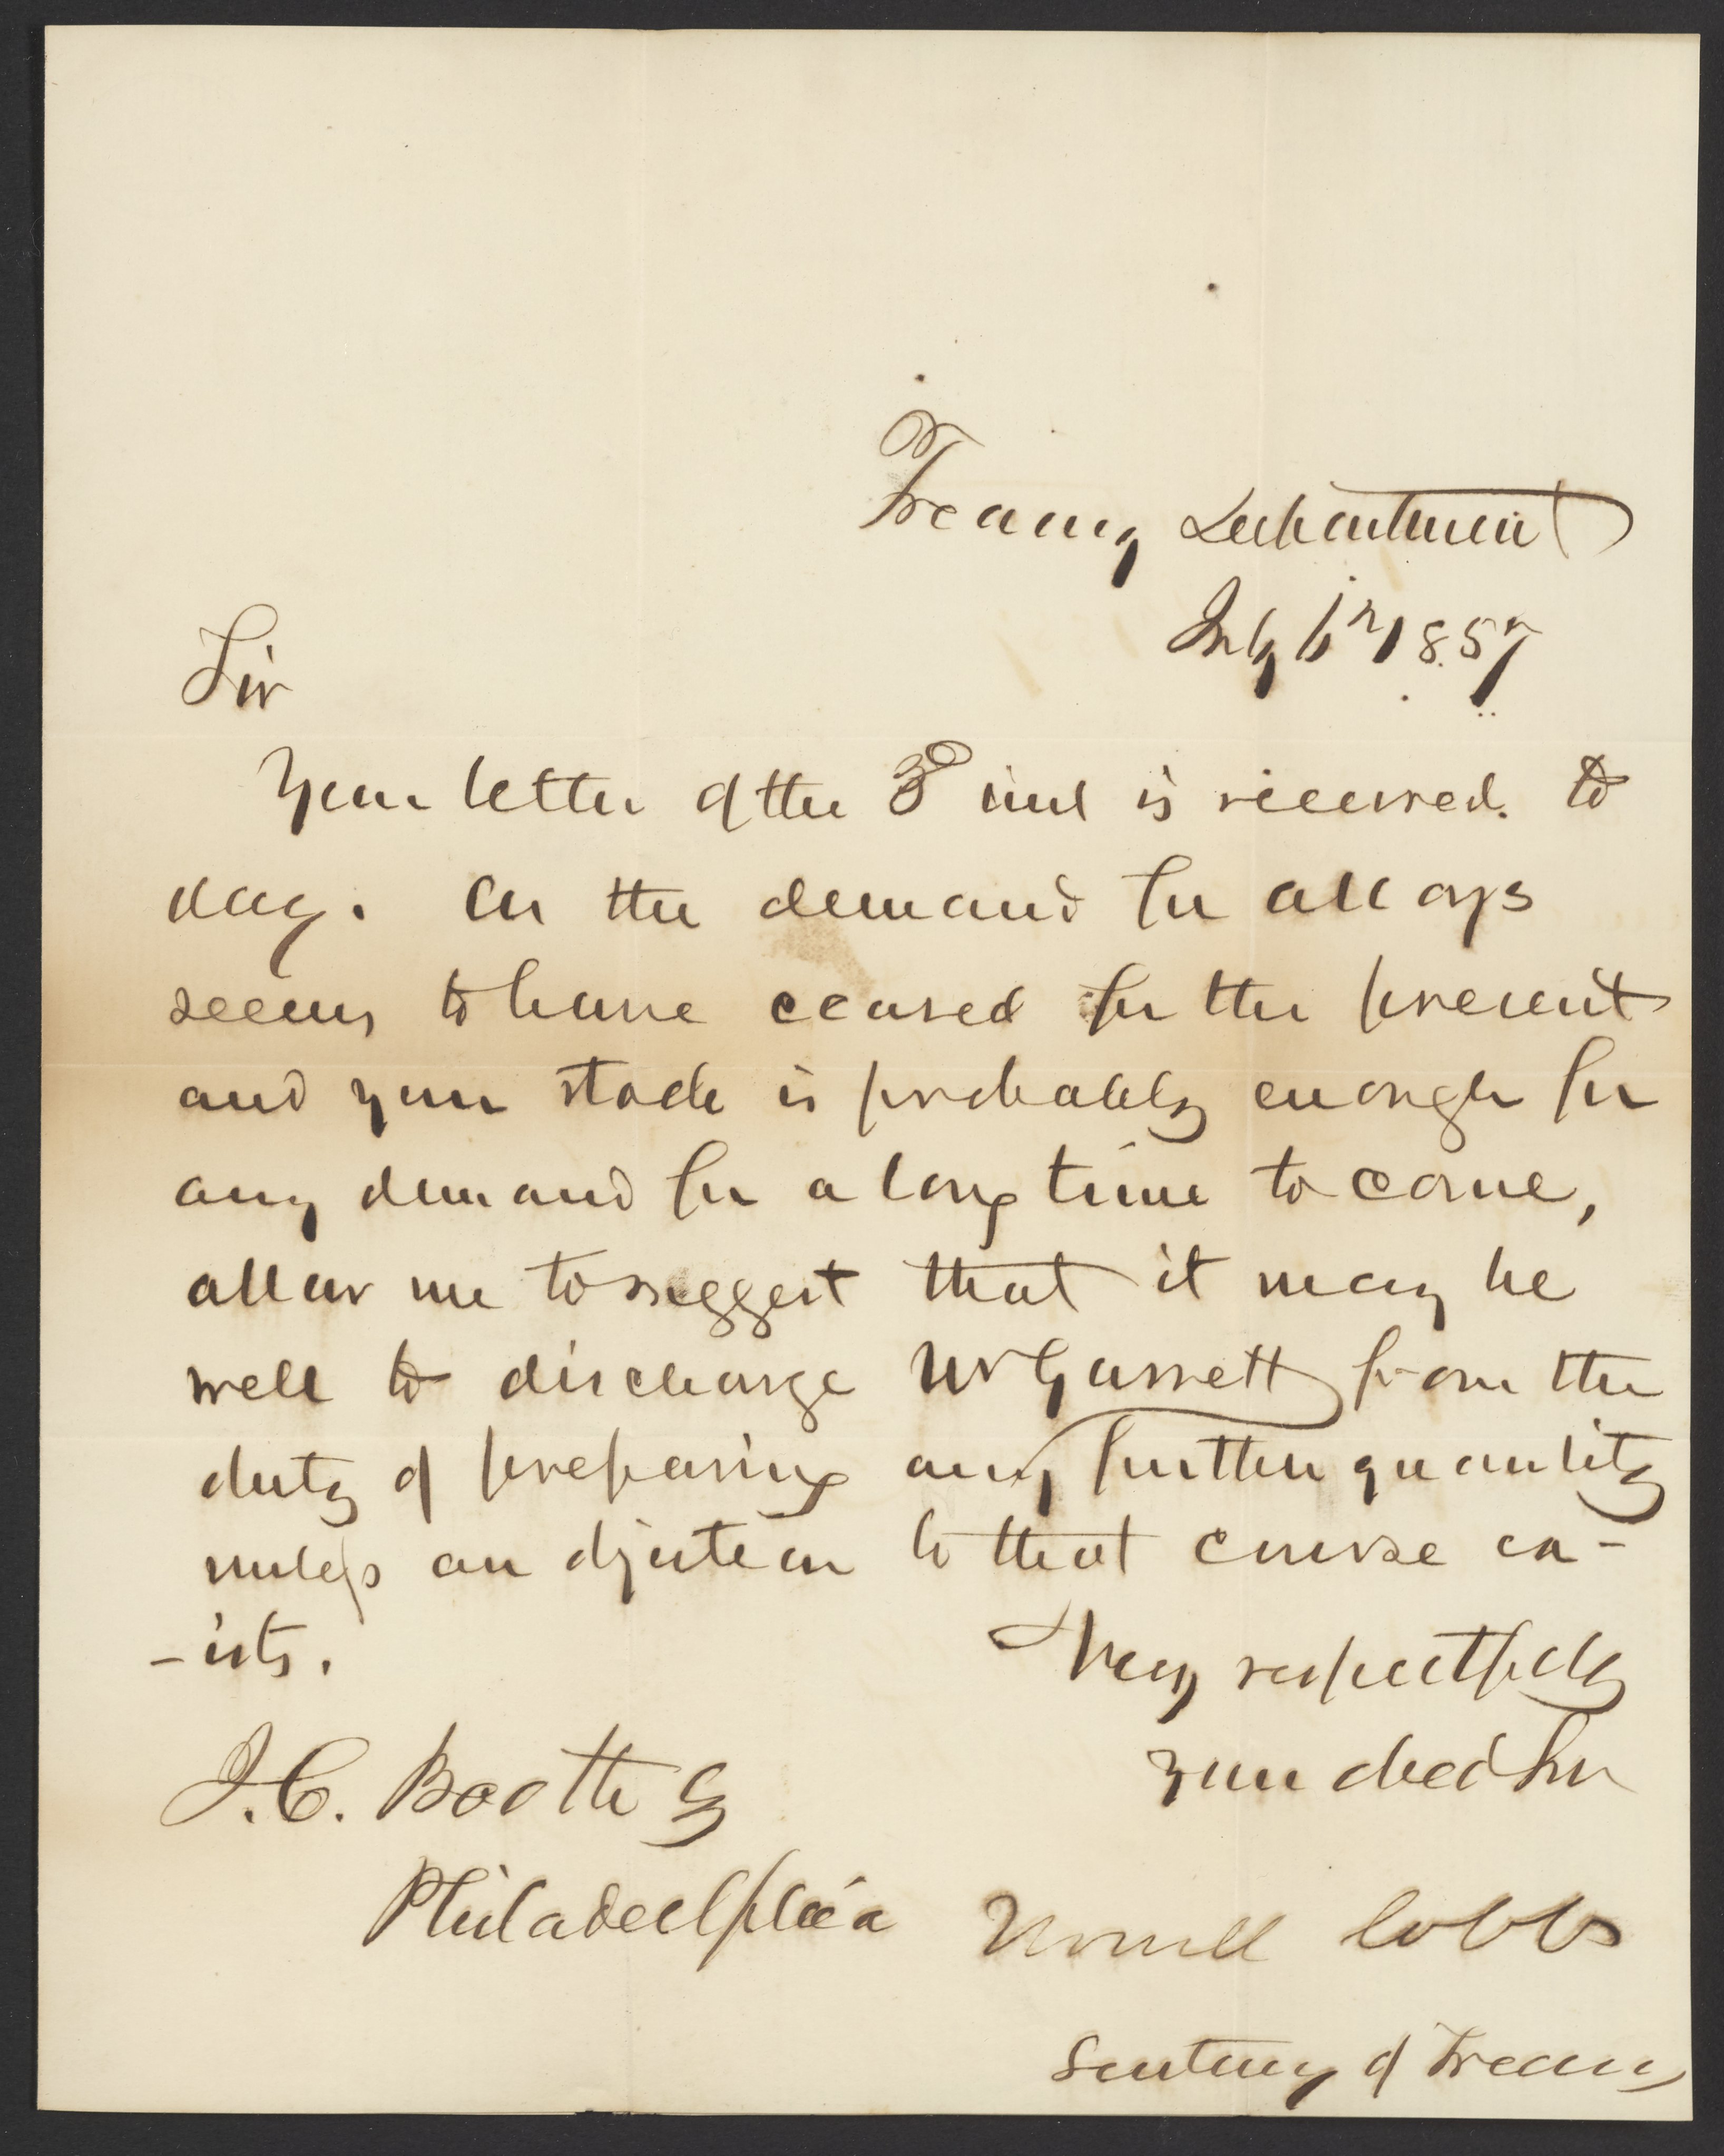 Treasury Department
July 6th 1857
Sir
Your letter of the 3d inst is received to
day. As the demand for alloys
seems to have ceased for the present
and your stock is probably enough for
any demand for a long time to come,
allow me to suggest that it may be
well to discharge Mr Garrett from the
duty of preparing any further quantity
unless an objection to that course ex-
-ists.
Very respectfully
your obed Sr
J. C. Booth Esq
Philadelphia
Howell Cobb
Secretary of Treasury